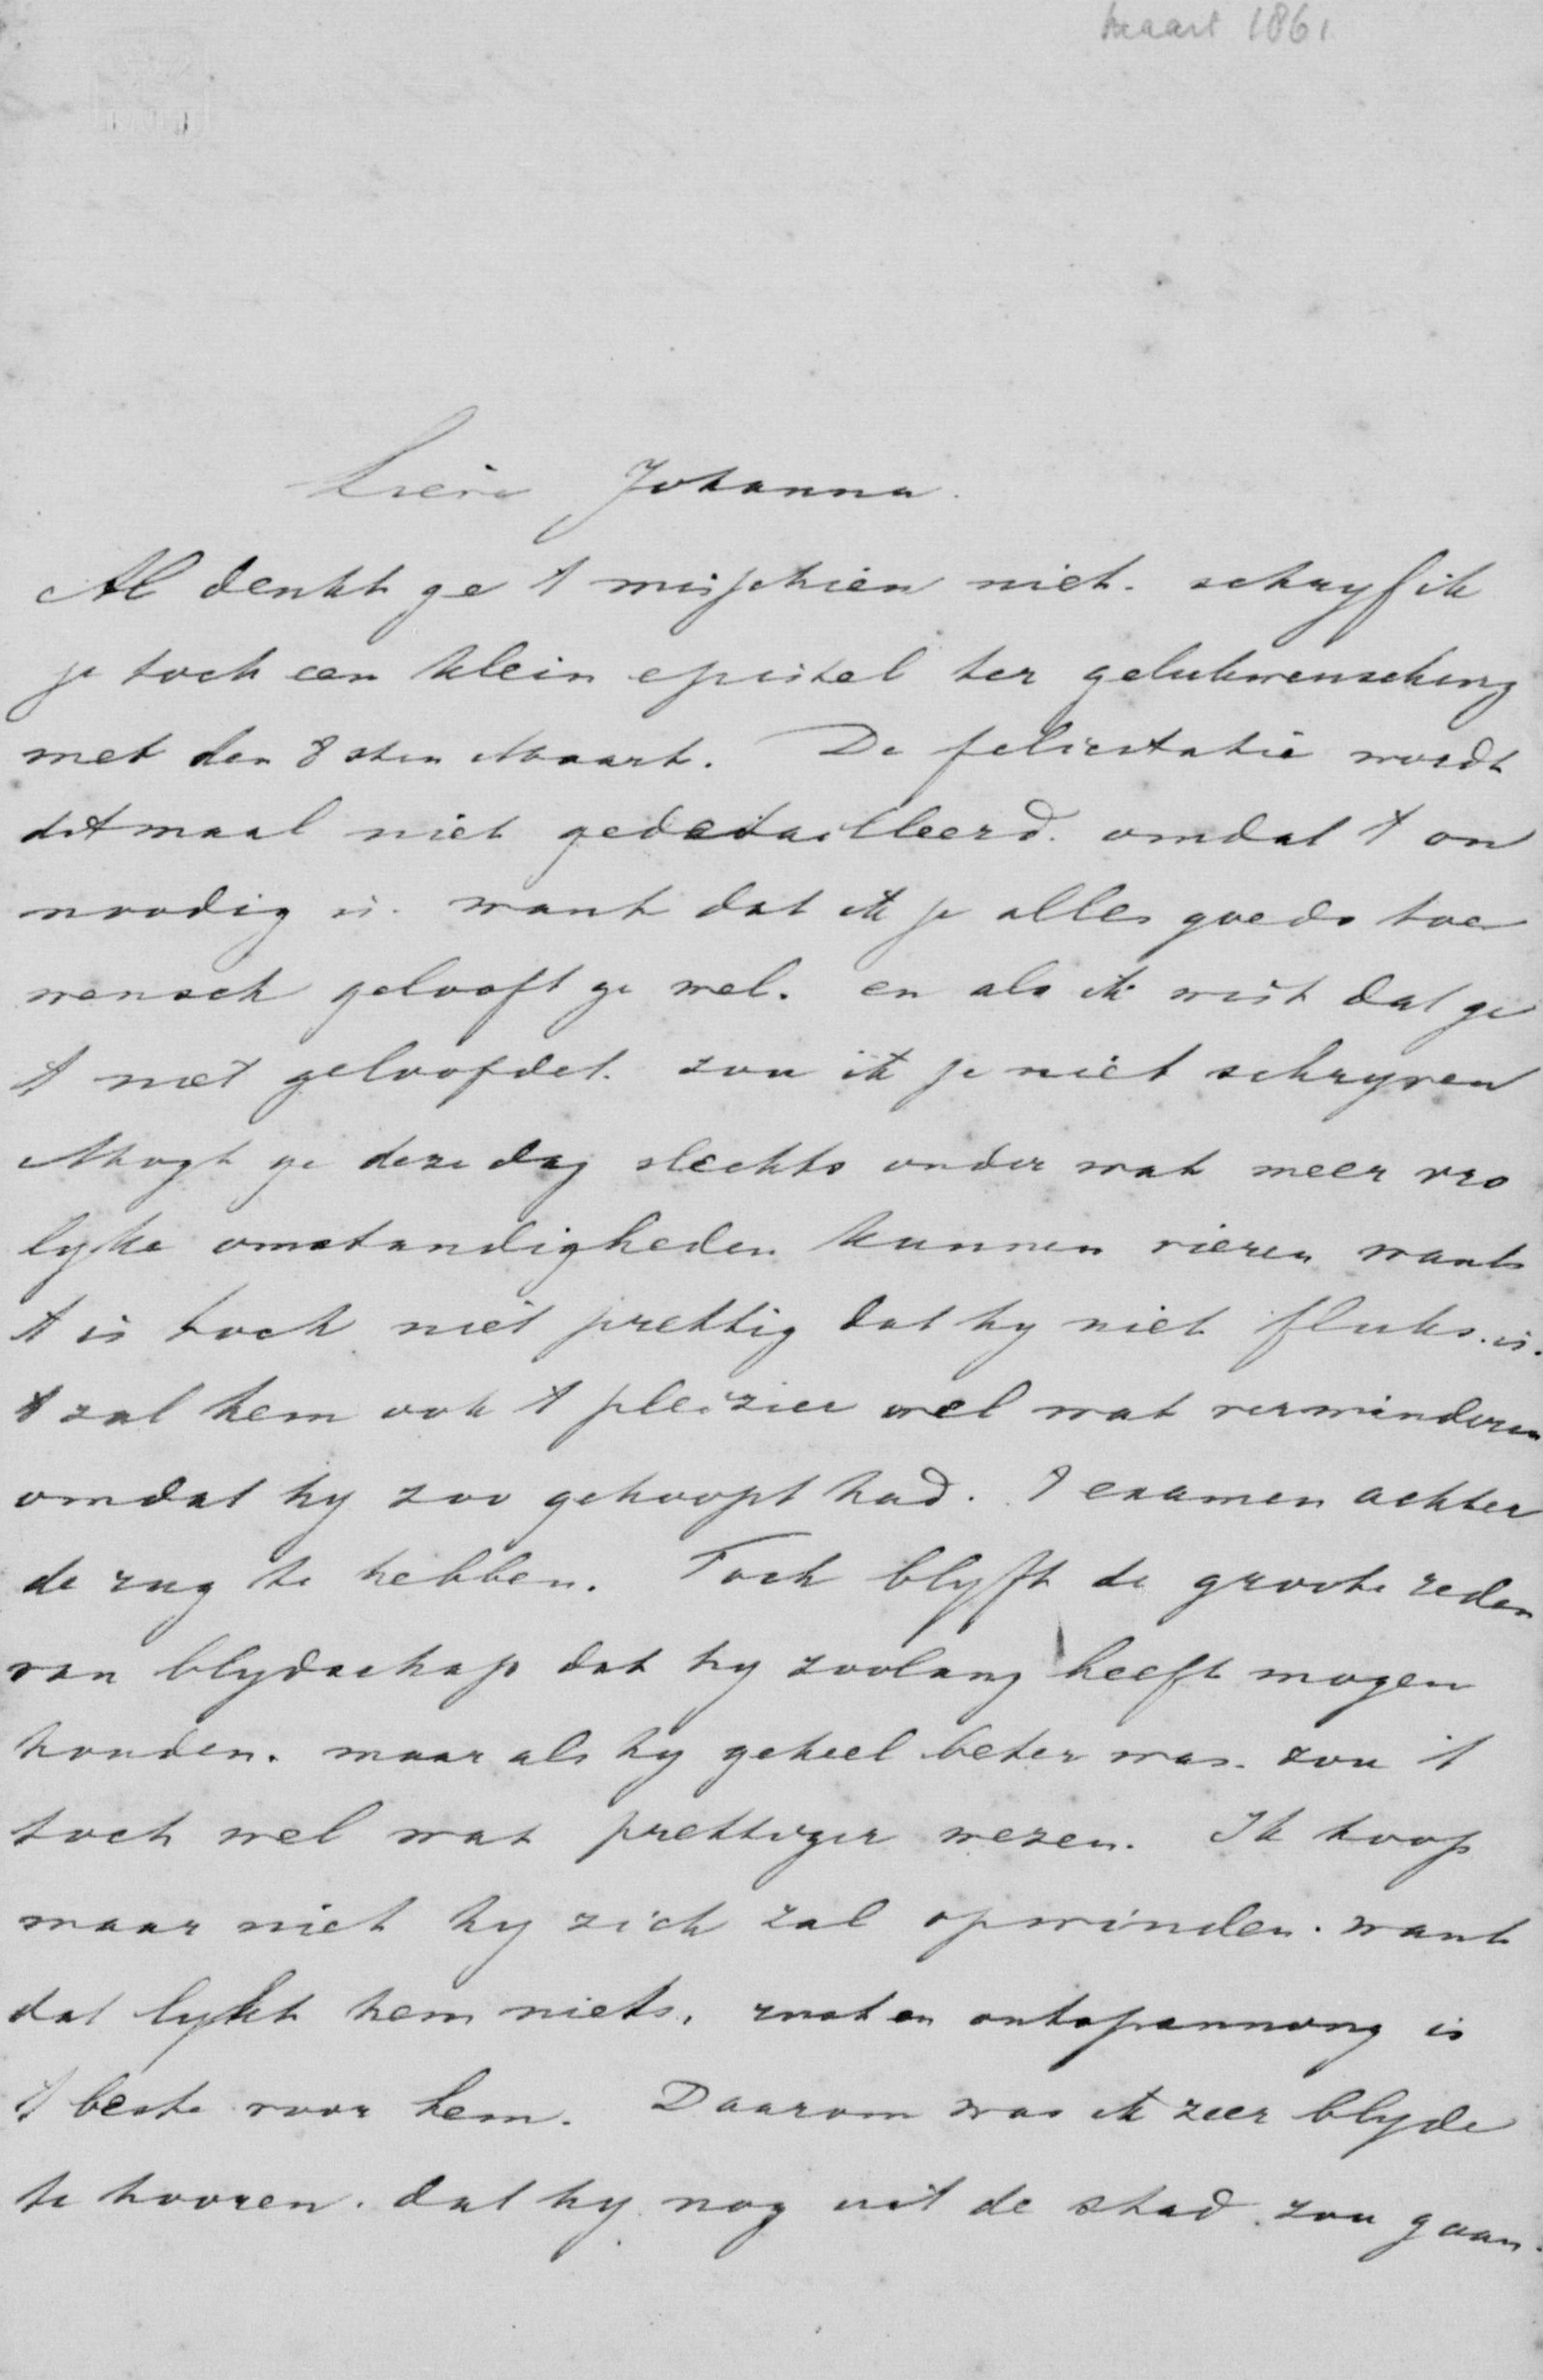 Maart 1861
Lieve Johanna.
Al denkt ge 't misschien niet. schryf ik
je toch een klein epistel ter gelukwensching
met den 8sten Maart. De felicitatie wordt
ditmaal niet gedetailleerd. omdat 't on
noodig is. want dat ik je alles goeds toe
wensch gelooft ge wel. en als ik wist dat ge
't niet geloofdet. zou ik je niet schryven
Mogt ge deze dag slechts onder wat meer vro
lyke omstandigheden kunnen vieren want
't is toch niet prettig dat hy niet fluks is.
't zal hem ook 't pleizier wel wat verminderen
omdat hy zoo gehoopt had. 't examen achter
de rug te hebben. Toch blyft de groote reden
van blydschap dat hy zoolang heeft mogen
houden. maar als hy geheel beter was. zou 't
toch wel wat prettiger wezen. Ik hoop
maar niet hy zich zal opwinden. want
dat lykt hem niets. rust en ontspanning is
't beste voor hem. Daarom was ik zeer blyde
te hooren. dat hy nog uit de stad zou gaan.